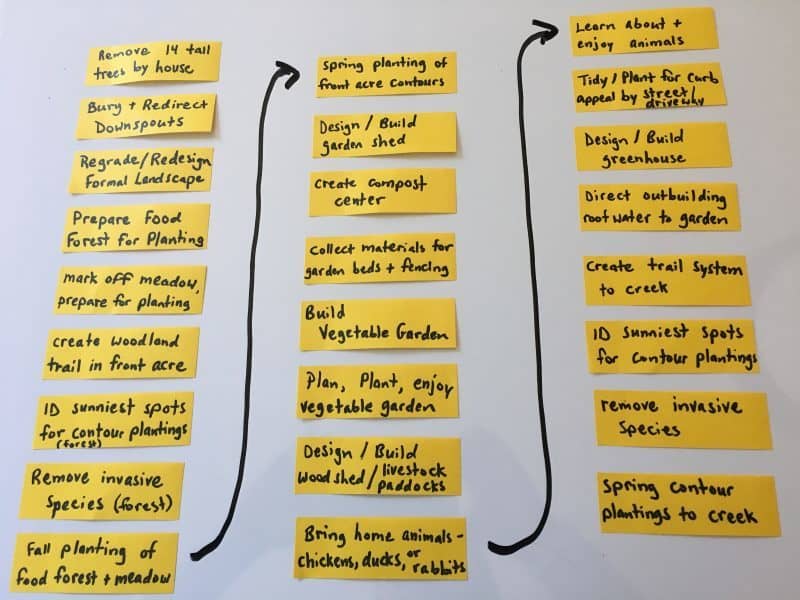 Remove 14 tall
trees by house
Bury + Redirect
Downspouts
Regrade/Redesign
Formal Landscape
Prepare Food
Forest for Planting
mark off meadow,
prepare for planting
create woodland
trail in front acre
ID sunniest spots
for contour plantings
(forest)
Remove invasive
Species (forest)
Fall planting of
food forest + meadow
spring planting of
front acre contours
Design / Build
garden shed
create compost
center
collect materials for
garden beds + fencing
Build
Vegetable Garden
Plan, Plant, enjoy
vegetable garden
Design / Build
wood shed / livestock
paddocks
Bring home animals -
chickens, ducks, or rabbits
Learn about +
enjoy animals
Tidy / Plant for curb
appeal by street/
driveway
Design / Build
greenhouse
Direct outbuilding
roof water to garden
Create trail system
to creek
ID sunniest spots
for contour plantings
remove invasive
species
Spring contour
plantings to creek